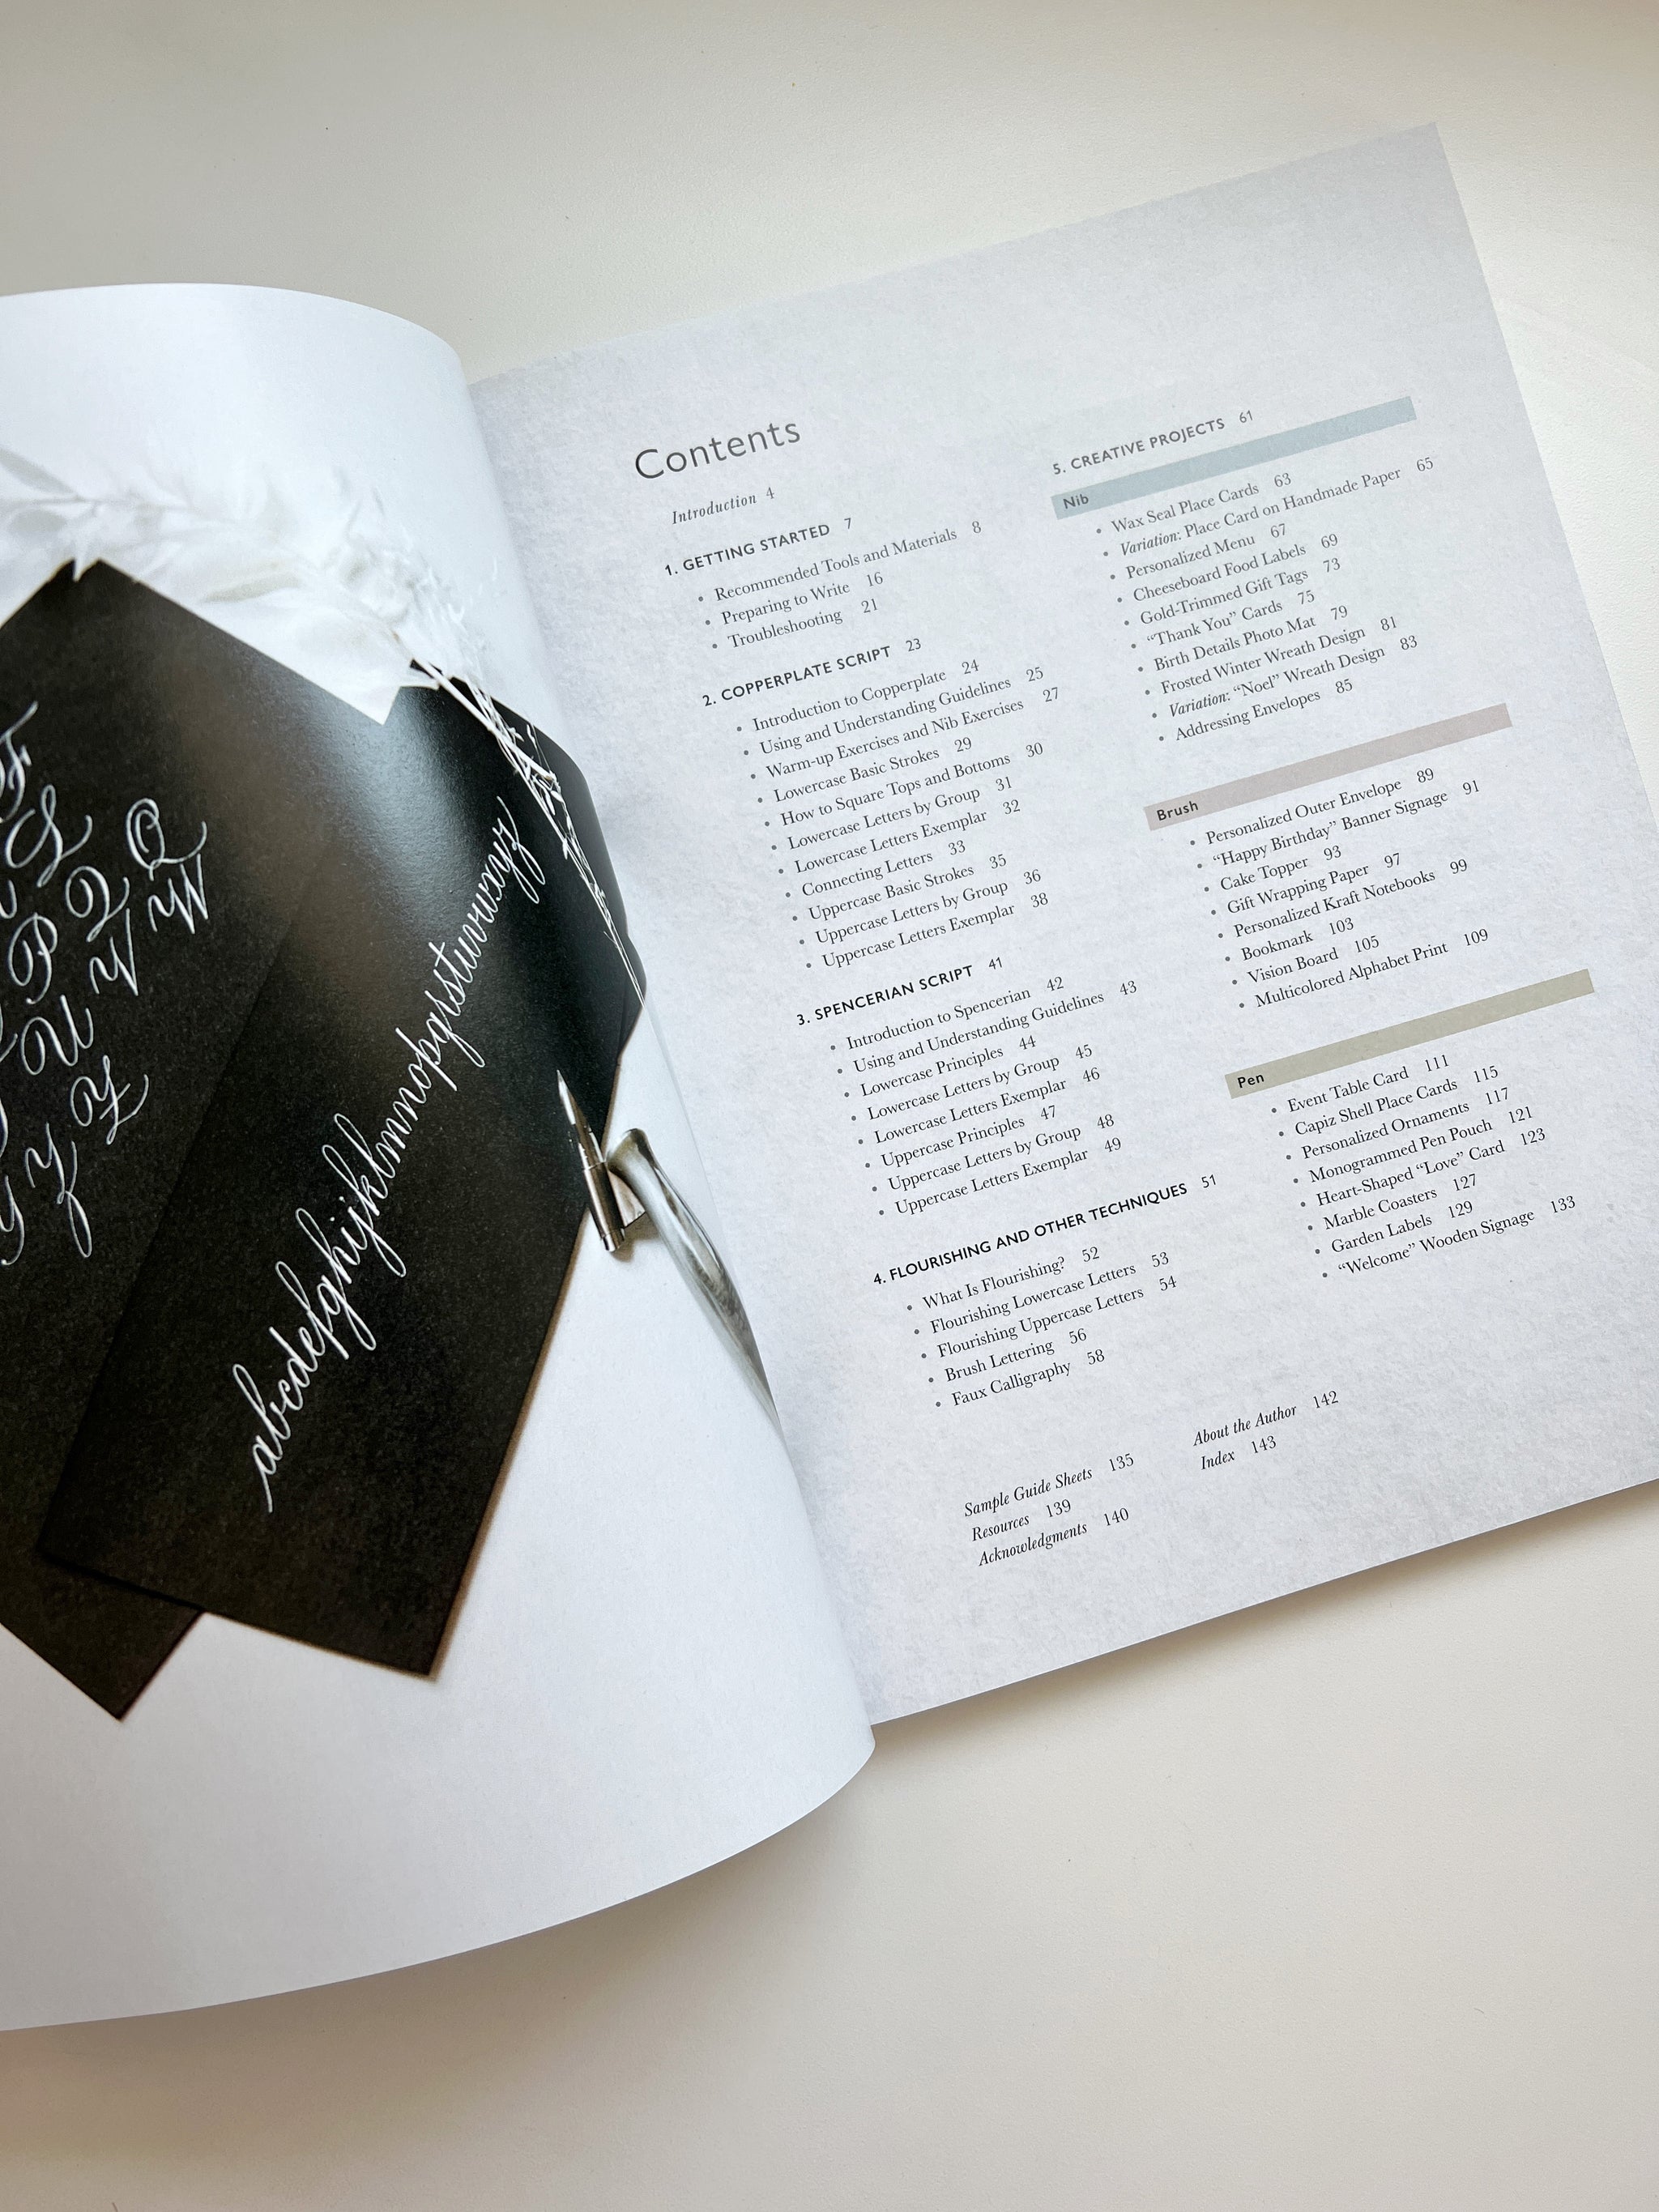 F
L
P Q Q
U V W
Y Z
abcdefghijklmnopqrstuvwxyz
Contents
Introduction 4
1. GETTING STARTED 7
• Recommended Tools and Materials 8
• Preparing to Write 16
• Troubleshooting 21
2. COPPERPLATE SCRIPT 23
• Introduction to Copperplate 24
• Using and Understanding Guidelines 25
• Warm-up Exercises and Nib Exercises 27
• Lowercase Basic Strokes 29
• How to Square Tops and Bottoms 30
• Lowercase Letters by Group 31
• Lowercase Letters Exemplar 32
• Connecting Letters 33
• Uppercase Basic Strokes 35
• Uppercase Letters by Group 36
• Uppercase Letters Exemplar 38
3. SPENCERIAN SCRIPT 41
• Introduction to Spencerian 42
• Using and Understanding Guidelines 43
• Lowercase Principles 44
• Lowercase Letters by Group 45
• Lowercase Letters Exemplar 46
• Uppercase Principles 47
• Uppercase Letters by Group 48
• Uppercase Letters Exemplar 49
4. FLOURISHING AND OTHER TECHNIQUES 51
• What Is Flourishing? 52
• Flourishing Lowercase Letters 53
• Flourishing Uppercase Letters 54
• Brush Lettering 56
• Faux Calligraphy 58
5. CREATIVE PROJECTS 61
Nib
• Wax Seal Place Cards 63
• Variation: Place Card on Handmade Paper 65
• Personalized Menu 67
• Cheeseboard Food Labels 69
• Gold-Trimmed Gift Tags 73
• “Thank You” Cards 75
• Birth Details Photo Mat 79
• Frosted Winter Wreath Design 81
• Variation: “Noel” Wreath Design 83
• Addressing Envelopes 85
Brush
• Personalized Outer Envelope 89
• “Happy Birthday” Banner Signage 91
• Cake Topper 93
• Gift Wrapping Paper 97
• Personalized Kraft Notebooks 99
• Bookmark 103
• Vision Board 105
• Multicolored Alphabet Print 109
Pen
• Event Table Card 111
• Capiz Shell Place Cards 115
• Personalized Ornaments 117
• Monogrammed Pen Pouch 121
• Heart-Shaped “Love” Card 123
• Marble Coasters 127
• Garden Labels 129
• “Welcome” Wooden Signage 133
Sample Guide Sheets 135
Resources 139
Acknowledgments 140
About the Author 142
Index 143